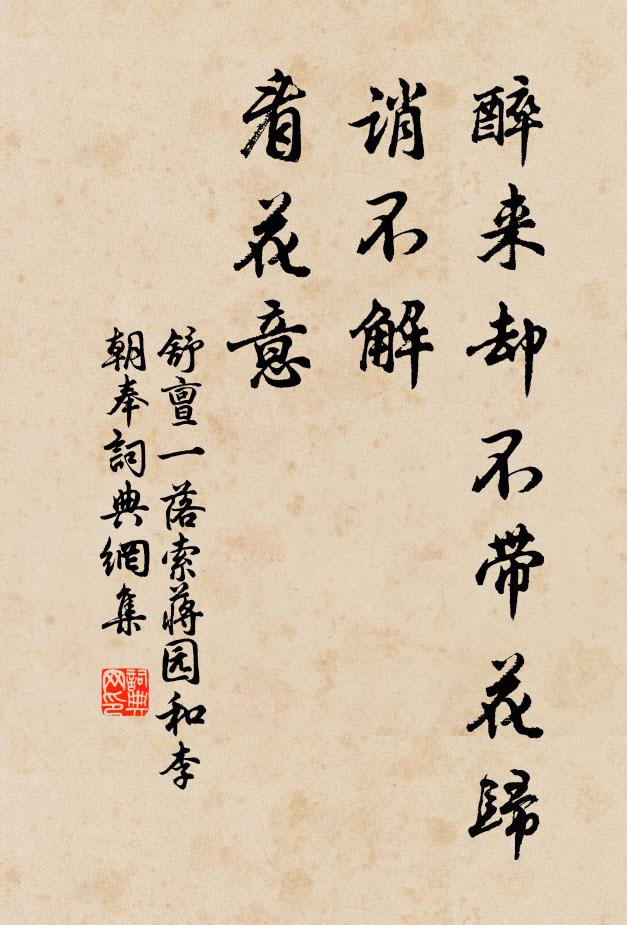 醉来却不带花歸
誚不解
看花意
舒亶一落索蔣园和李
朝奉詞典網集
詞典网印